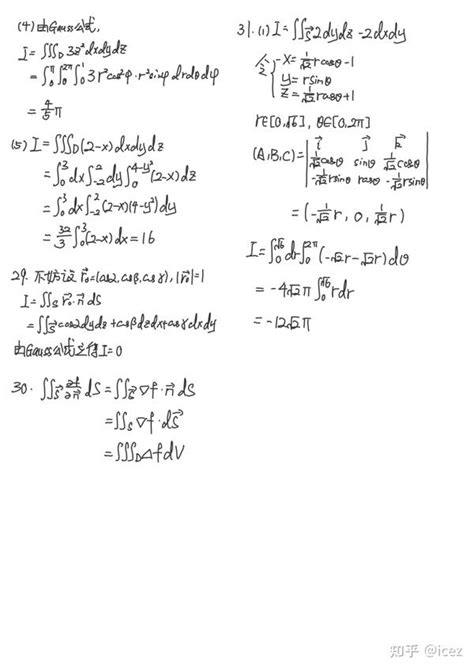 (4) 由Gauss公式,
I = ∭_D 3z² dxdydz
= ∫₀^π ∫₀^{2π} ∫₀¹ 3r²cos²φ · r²sinφ dr dθ dφ
= 4/5 π
(5) I = ∭_D (2-x) dxdydz
= ∫₀³ dx ∫₋₂² dy ∫₀^{4-y²} (2-x) dz
= ∫₀³ dx ∫₋₂² (2-x)(4-y²) dy
= 32/3 ∫₀³ (2-x) dx = 16
29. 不妨设 r⃗₀ = (cosα, cosβ, cosγ), |r⃗₀| = 1
I = ∬_S r⃗₀ · n⃗ dS
= ∬_S⃗ cosα dydz + cosβ dzdx + cosγ dxdy
由Gauss公式立得 I = 0
30. ∬_S⃗ ∂f/∂n⃗ dS = ∬_S⃗ ∇f · n⃗ dS
= ∬_S ∇f · dS⃗
= ∭_D Δf dV
31. (1) I = ∬_S⃗ 2dydz - 2dxdy
令 x = 1/√2 r cosθ - 1
y = r sinθ
z = 1/√2 r cosθ + 1
r∈[0,√6], θ∈[0,2π]
(A,B,C) = | i⃗ j⃗ k⃗ |
| 1/√2 cosθ sinθ 1/√2 cosθ |
| -1/√2 r sinθ r cosθ -1/√2 r sinθ |
= (-1/√2 r, 0, 1/√2 r)
I = ∫₀^{√6} dr ∫₀^{2π} (-√2 r - √2 r) dθ
= -4√2 π ∫₀^{√6} r dr
= -12√2 π
知乎 @icez